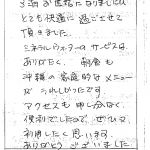 3泊お世話になりましたが
とても快適に過ごさせて
頂きました。
ミネラルウォーターのサービスは
ありがたく、朝食も
沖縄の家庭的なメニュー
がうれしかったです。
アクセスも申し分なく
便利でしたので、ぜひ又
利用したく思います。
ありがとうございました